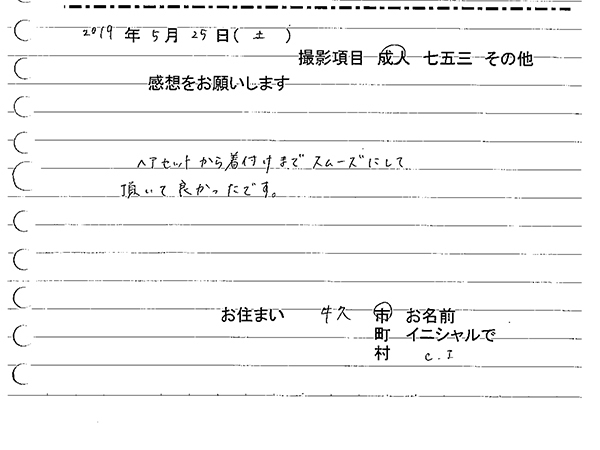 2019 年 5 月 25 日( 土 )
撮影項目 成人 七五三 その他
感想をお願いします
ヘアセットから着付けまでスムーズにして
頂いて良かったです。
お住まい 牛久 市 お名前
町 イニシャルで
村 C.I